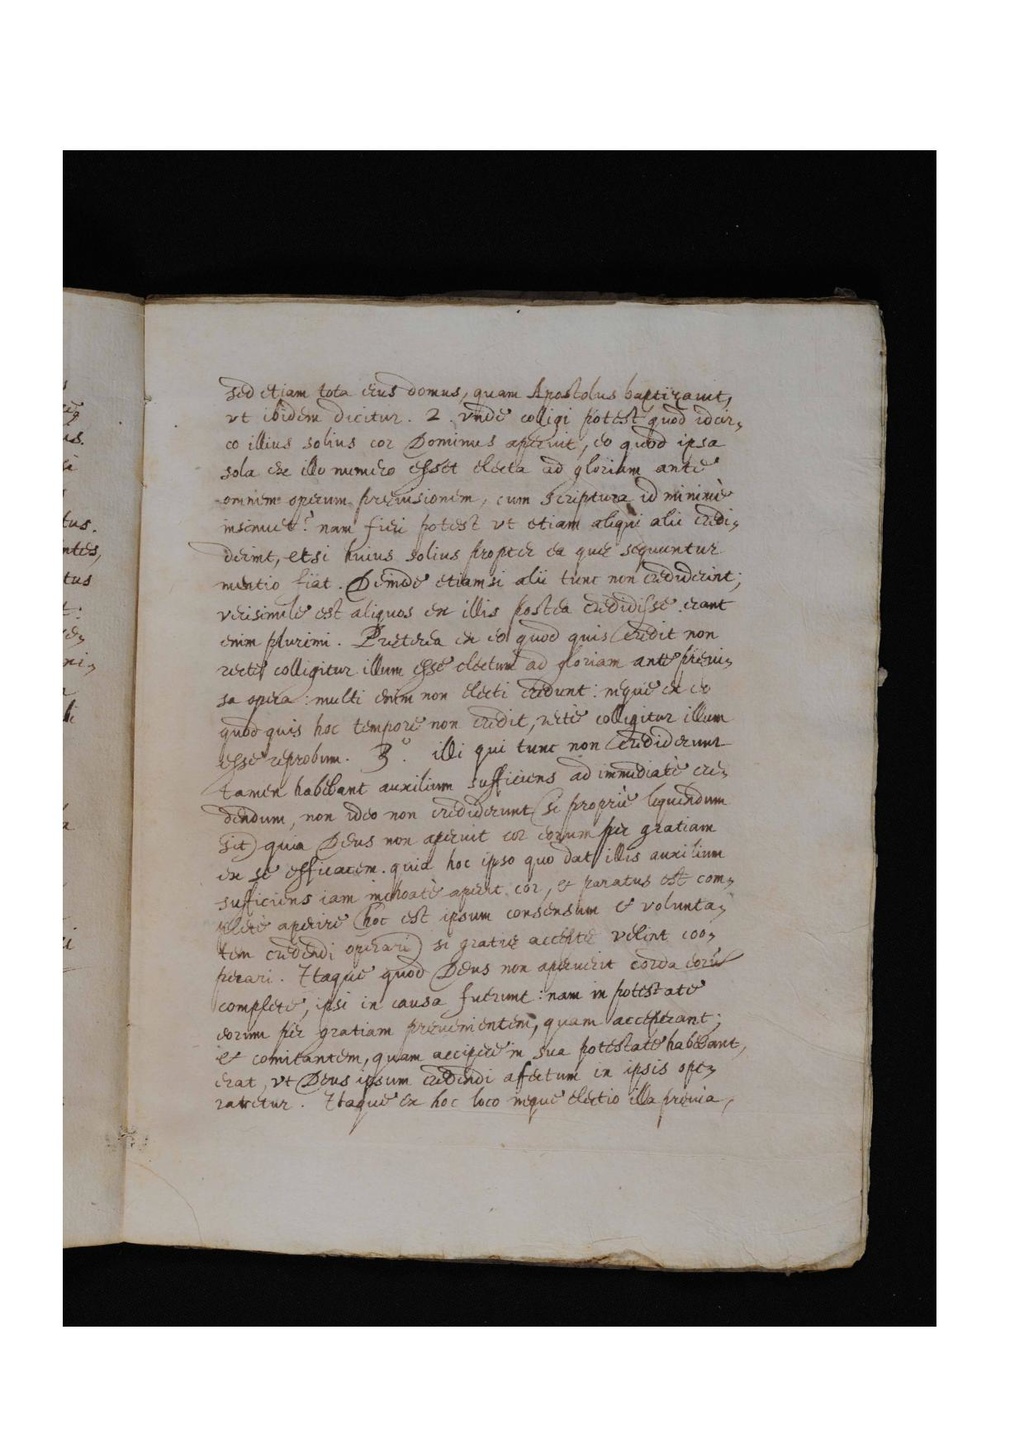 sed etiam tota eius domus, quam Apostolus baptizavit,
vt ibidem dicitur. 2. vnde colligi potest quod idcir,
co illius solius cor Dominus aperuit, eo quod ipsa
sola ex illo numero esset electa ad gloriam ante
omnem operum praevisionem, cum scriptura id minimè
insinuet? nam fieri potest vt etiam aliqui alii credi,
derint, etsi huius solius propter ea quae sequuntur
mentio fiat. Deinde etiamsi alii tunc non crediderint;
verisimile est aliquos ex illis postea credidisse erant
enim plurimi. Praeterea ex eo quod quis credit non
rectè colligitur illum esse electum ad gloriam ante praevi,
sa opera: multi enim non electi credunt: neque ex eo
quod quis hoc tempore non credit, rectè colligitur illum
esse reprobum. 3º. illi qui tunc non crediderunt
tamen habebant auxilium sufficiens ad immediatè cre,
dendum, non ideo non crediderunt (si propriè loquendum
sit) quia Deus non aperuit cor eorum per gratiam
ex se efficacem. quia hoc ipso quo dat illis auxilium
sufficiens iam inchoatè aperit cor, et paratus est com,
pletè aperire (hoc est ipsum consensum et volunta,
tem credendi operari) si gratiae acceptae velint coo,
perari. Itaque quod Deus non aperuerit corda eorū
completè, ipsi in causa fuerunt: nam in potestate
eorum per gratiam praevenientem, quam acceperant;
et comitantem, quam accipere in sua potestate habebant,
erat, vt Deus ipsum credendi affectum in ipsis ope,
raretur. Itaque ex hoc loco neque electio illa praevia,